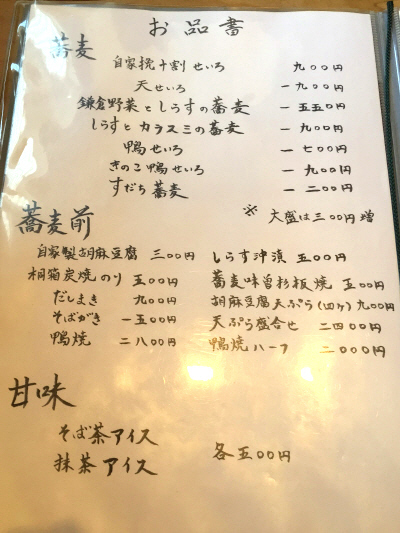 お品書
蕎麦
自家挽十割せいろ 九〇〇円
天せいろ 一九〇〇円
鎌倉野菜としらすの蕎麦 一五五〇円
しらすとカラスミの蕎麦 一九〇〇円
鴨せいろ 一七〇〇円
きのこ鴨せいろ 一九〇〇円
すだち蕎麦 一二〇〇円
※ 大盛は三〇〇円増
蕎麦前
自家製胡麻豆腐 三〇〇円
桐箱炭焼のり 五〇〇円
だしまき 九〇〇円
そばがき 一五〇〇円
鴨焼 二八〇〇円
しらす沖漬 五〇〇円
蕎麦味曽杉板焼 五〇〇円
胡麻豆腐天ぷら(四ヶ) 九〇〇円
天ぷら盛合せ 二四〇〇円
鴨焼ハーフ 二〇〇〇円
甘味
そば茶アイス
抹茶アイス
各五〇〇円